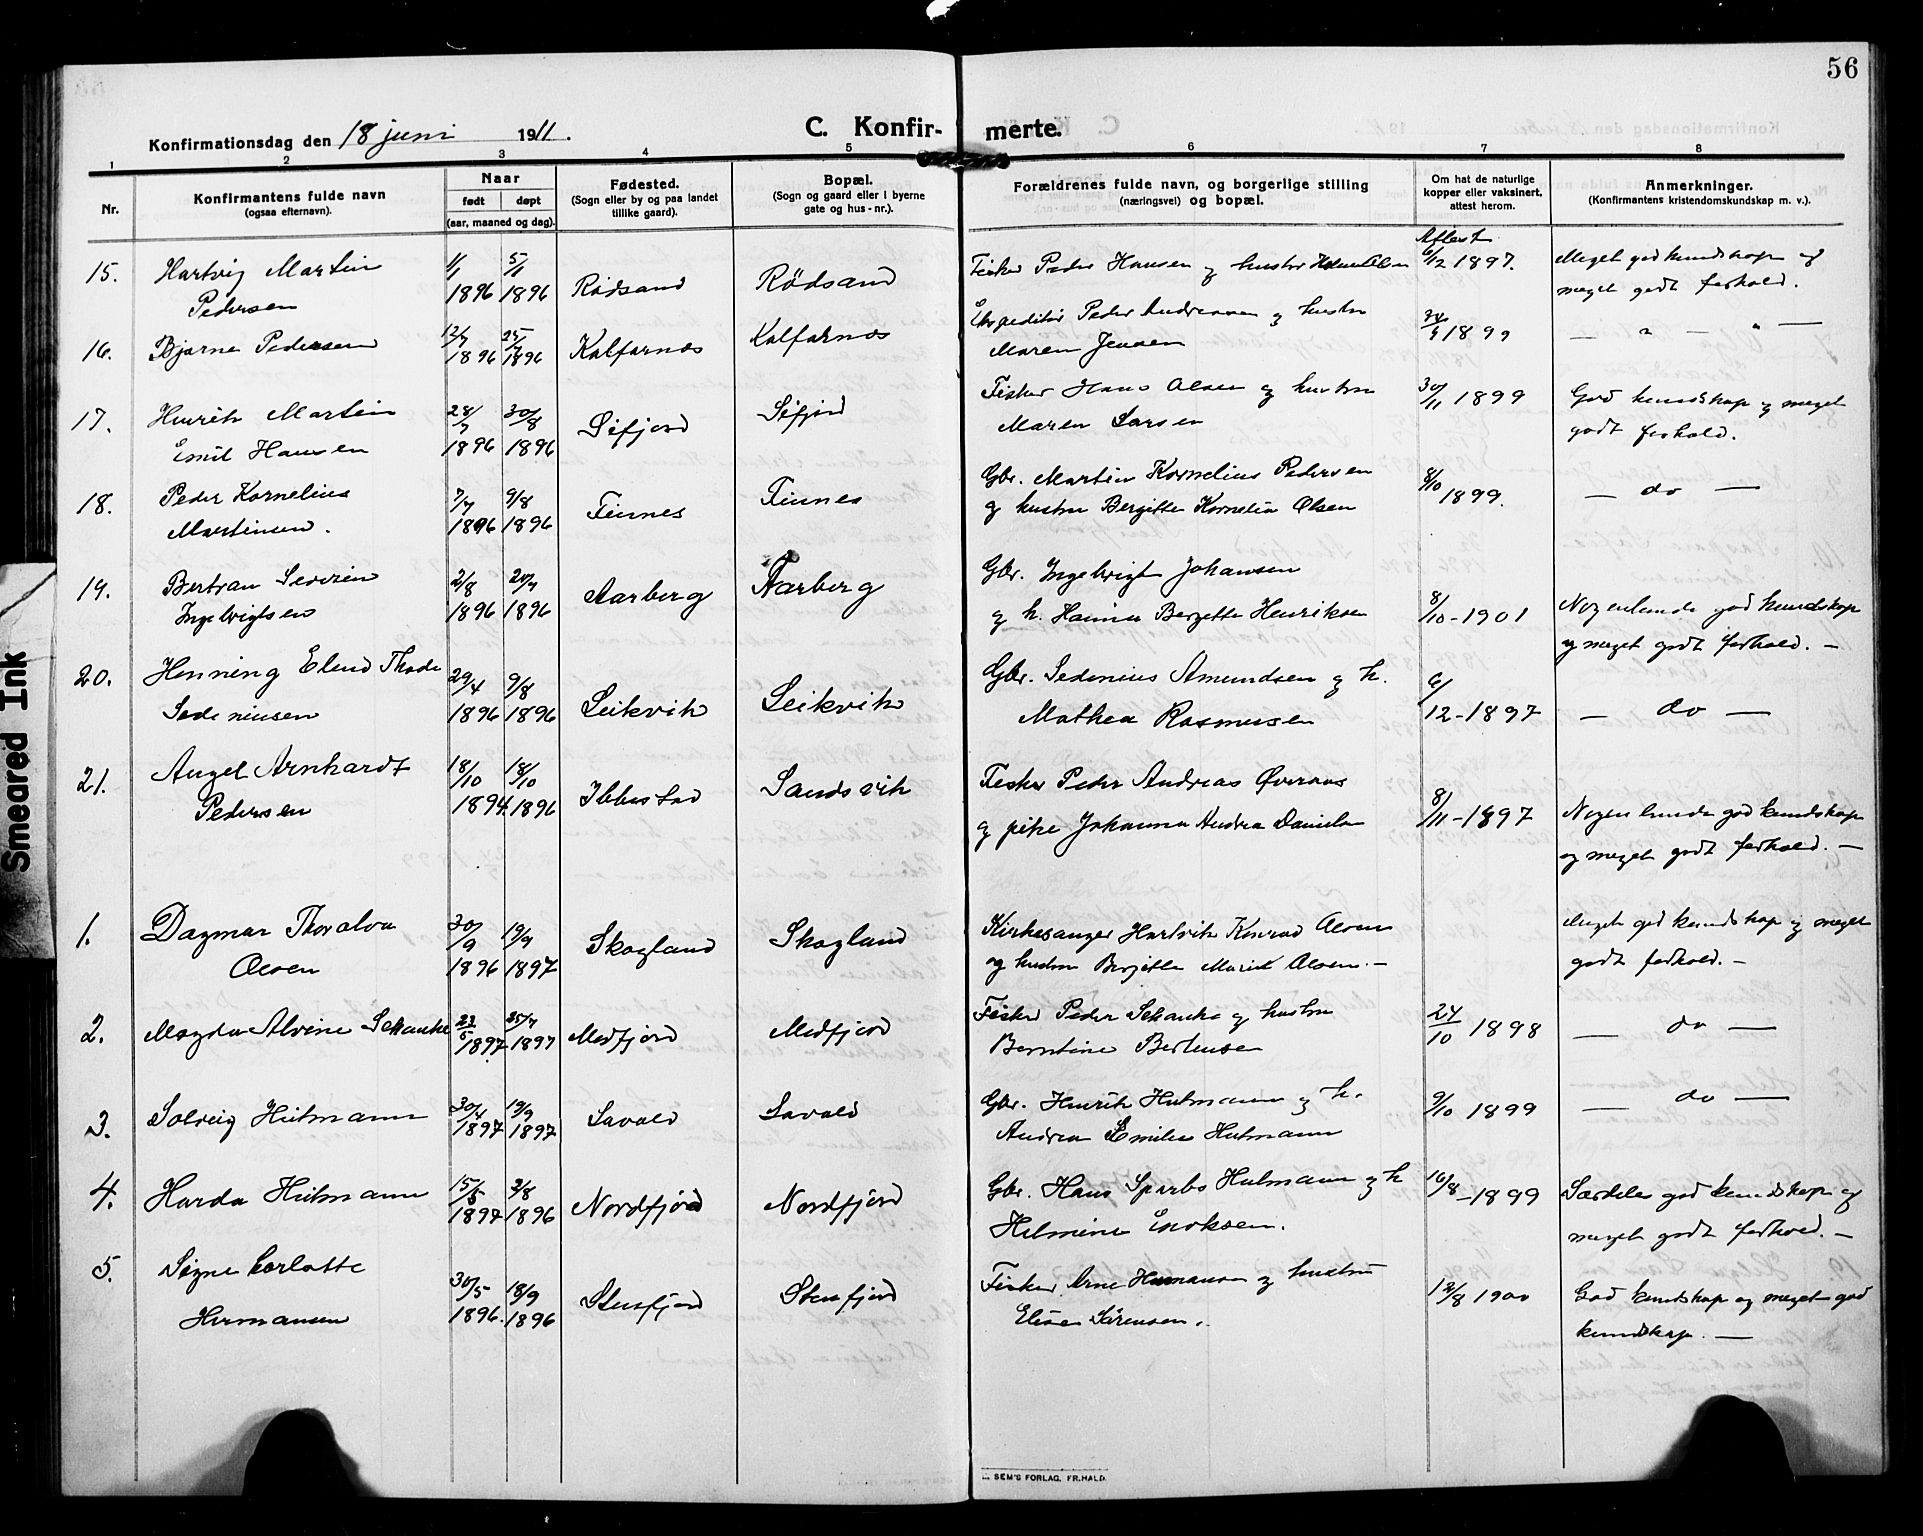 56
Konfirmationsdag den 18 juni 1911.
C. Konfirmerte.
1 2 3 4 5 6 7 8
Nr.
Konfirmantens fulde navn
(ogsaa efternavn).
Naar
født døpt
(aar, maaned og dag).
Fødested.
(Sogn eller by og paa landet
tillike gaard).
Bopæl.
(Sogn og gaard eller i byerne
gate og hus-nr.).
Forældrenes fulde navn, og borgerlige stilling
(næringsvei) og bopæl.
Om hat de naturlige
kopper eller vaksinert,
attest herom.
Anmerkninger.
(Konfirmantens kristendomskundskap m. v.).
15. Hartvig Martin 1/1 5/1 Rødsand Rødsand Fisker Peder Hansen og hustru Attest 6/12 1897. Meget god kundskap og
Pedersen 1896 1896 meget godt forhold.
16. Bjarne Pedersen 12/7 25/7 Kalfarnes Kalfarnes Ekspeditør Peder Andreasen og hustru 1899 — " — " —
1896 1896 Maren Jensen
17. Henrik Martin 28/7 30/8 Sifjord Sifjord Fisker Hans Olsen og hustru 30/11 1899 God kundskap og meget
Emil Hansen 1896 1896 Maren Larsen godt forhold.
18. Peder Kornelius 7/7 9/8 Finnes Finnes Gbr. Martin Kornelius Pedersen 8/10 — do —
Martinsen. 1896 1896 og hustru Bergitte Kornelia Olsen 1899.
19. Bertran Severin 2/8 20/9 Aarberg Aarberg Gbr. Ingebrigt Johansen
Ingebrigtsen 1896 1896 og h. Hanna Bergette Henriksen 8/10-1901 Nogenlunde god kundskap
og meget godt forhold. —
20. Henning Elend Thode 29/4 9/8 Leikvik Leikvik Gbr. Sedenius Amundsen og h. 6/
Sedeniusen 1896 1896 Mathea Rasmussen 12-1897 — do —
21. Angel Arnhardt 18/10 18/10 Ibbestad Sandsvik Fisker Peder Andreas Øveraas 8/11-1897 Nogenlunde god kundskap
Pedersen 1894. 1896 og pike Johanna Andrea Danielsen og meget godt forhold. —
1. Dagmar Thoralva 30/9 19/9 Skogland Skogland Kirkesanger Hartvik Konrad Olsen Meget god kundskap og meget
Olsen 1896 1897 og hustru Bergitte Marie Olsen. — godt forhold. —
2. Magda Alvine Schanke 23/5 25/7 Medfjord Medfjord Fisker Peder Schanke og hustru 24/10 1898 — do —
1897 1897 Berntine Bertensen
3. Solveig Hutmann 30/4 19/9 Lavold Lavold Gbr. Henrik Hutmann og h. 9/10 1899 — do —
1897 1897 Andrea Emilie Hutmann
4. Harda Hutmann 15/5 2/8 Nordfjord Nordfjord Gbr. Hans Sparbo Hutmann og h 16/8-1899 Særdeles god kundskap og
1897 1896 Helmine Enoksen. meget godt forhold. —
5. Signe Carlotte 30/5 18/9 Stensfjord Stensfjord Fisker Arne Hermansen og hustru 12/8 1900 God kundskap og meget god
Hermansen 1896. 1896 Elise Sørensen. kundskap. —
SEM'S FORLAG, FR.HALD.
Smeared Ink